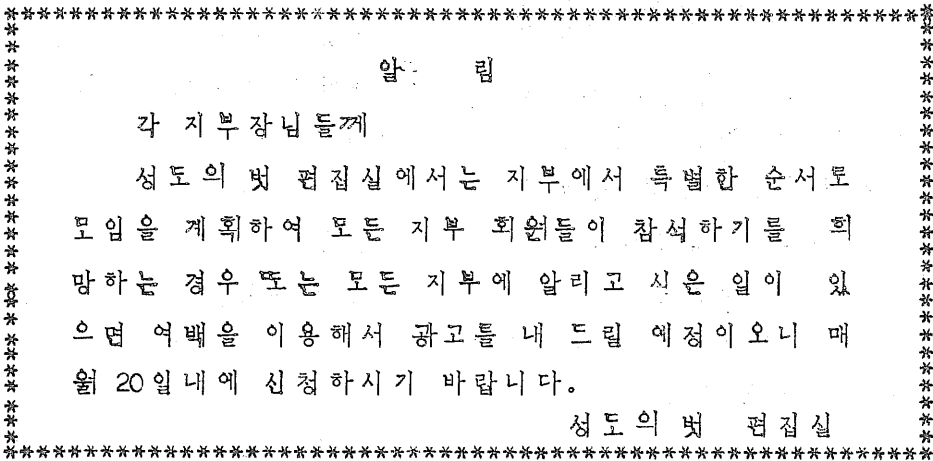 알 림
각 지부장님들께
성도의 벗 편집실에서는 지부에서 특별한 순서로
모임을 계획하여 모든 지부 회원들이 참석하기를 희
망하는 경우 또는 모든 지부에 알리고 싶은 일이 있
으면 여백을 이용해서 광고를 내 드릴 예정이오니 매
월 20일내에 신청하시기 바랍니다.
성도의 벗 편집실